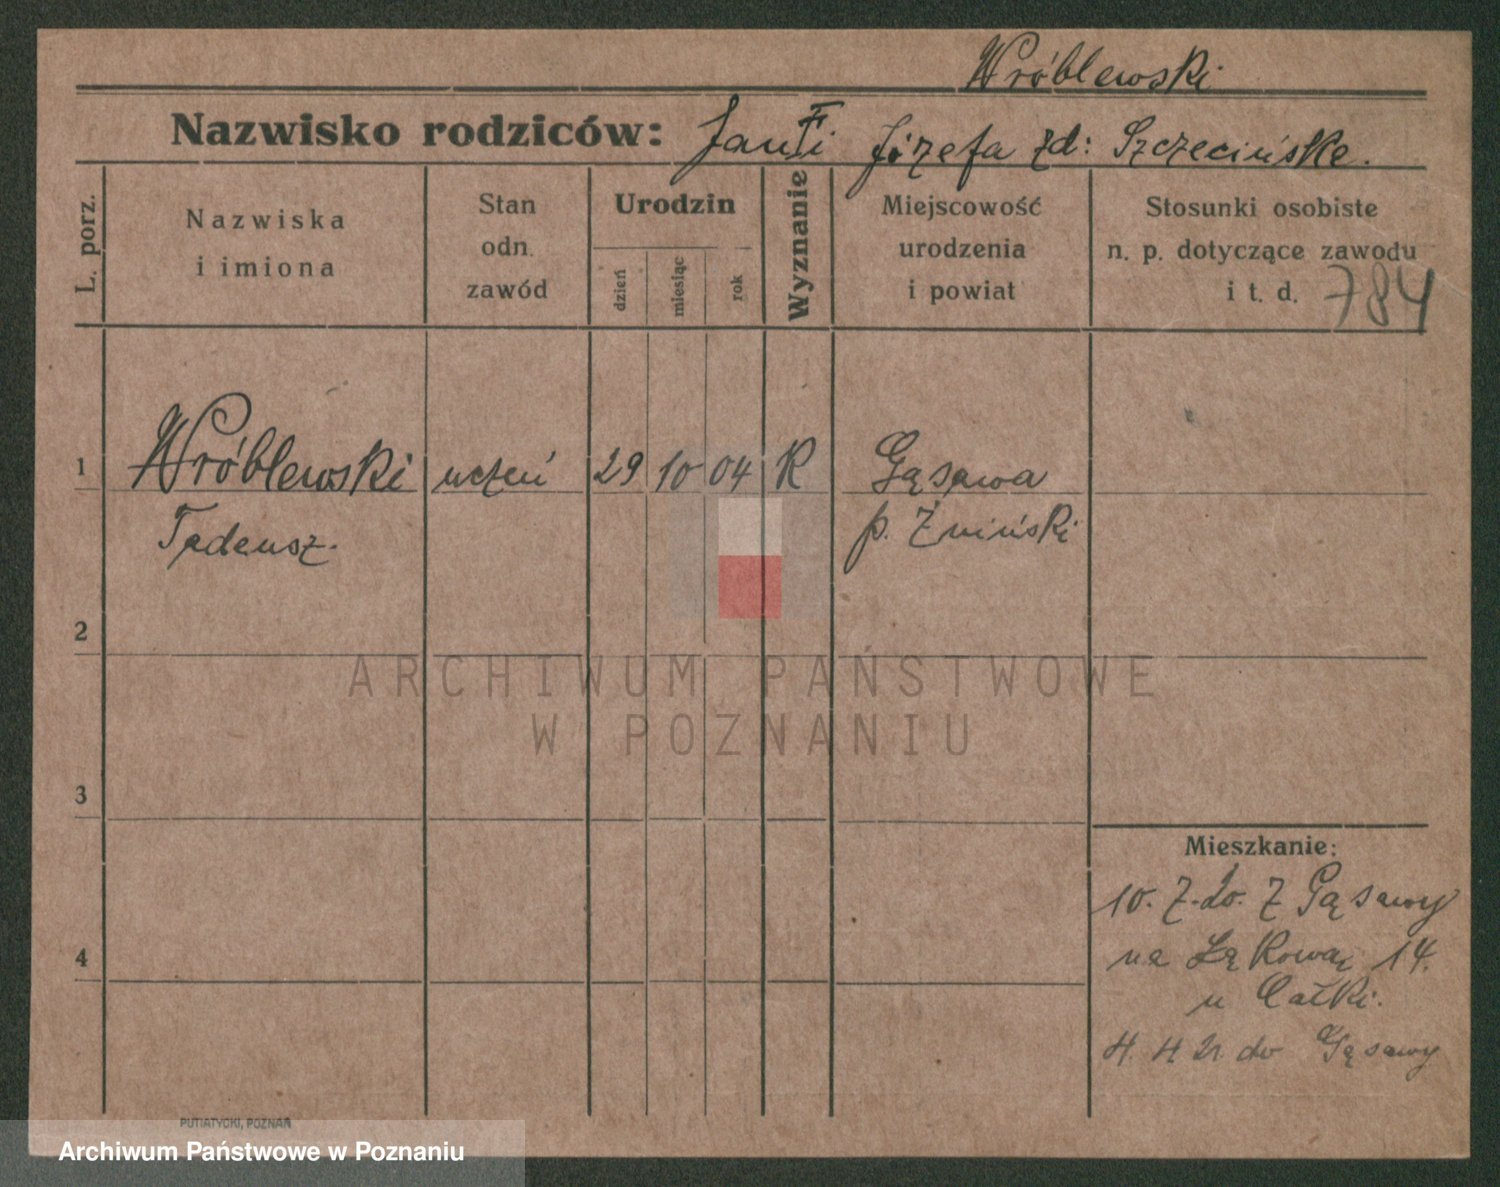 Wróblewski
Nazwisko rodziców: Jan † i Józefa zd: Szczecińska.
L. porz.
Nazwiska
i imiona
Stan
odn.
zawód
Urodzin
dzień
miesiąc
rok
Wyznanie
Miejscowość
urodzenia
i powiat
Stosunki osobiste
n. p. dotyczące zawodu
i t. d. 784
1 Wróblewski uczeń 29 10 04 R Gąsawa
Tadeusz. p. Żniński
2
3
4
Mieszkanie:
10. 7. 20. z Gąsawy
na Łąkową 14.
u Całki.
4. 4 21 do Gąsawy
PUTIATYCKI, POZNAŃ
ARCHIWUM PAŃSTWOWE
W POZNANIU
Archiwum Państwowe w Poznaniu